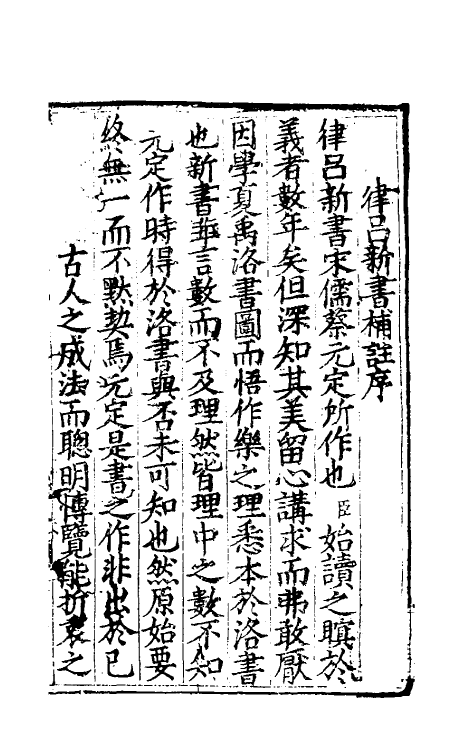 律呂新書補註序
律呂新書宋儒蔡元定所作也臣始讀之瞑於
義者數年矣但深知其美留心講求而弗敢厭
因學夏禹洛書圖而悟作樂之理悉本於洛書
也新書雖言數而不及理然皆理中之數不知
元定作時得於洛書與否未可知也然原始要
終無一而不黙契焉元定是書之作非出於已
古人之成法而聰明博覽能折衷之